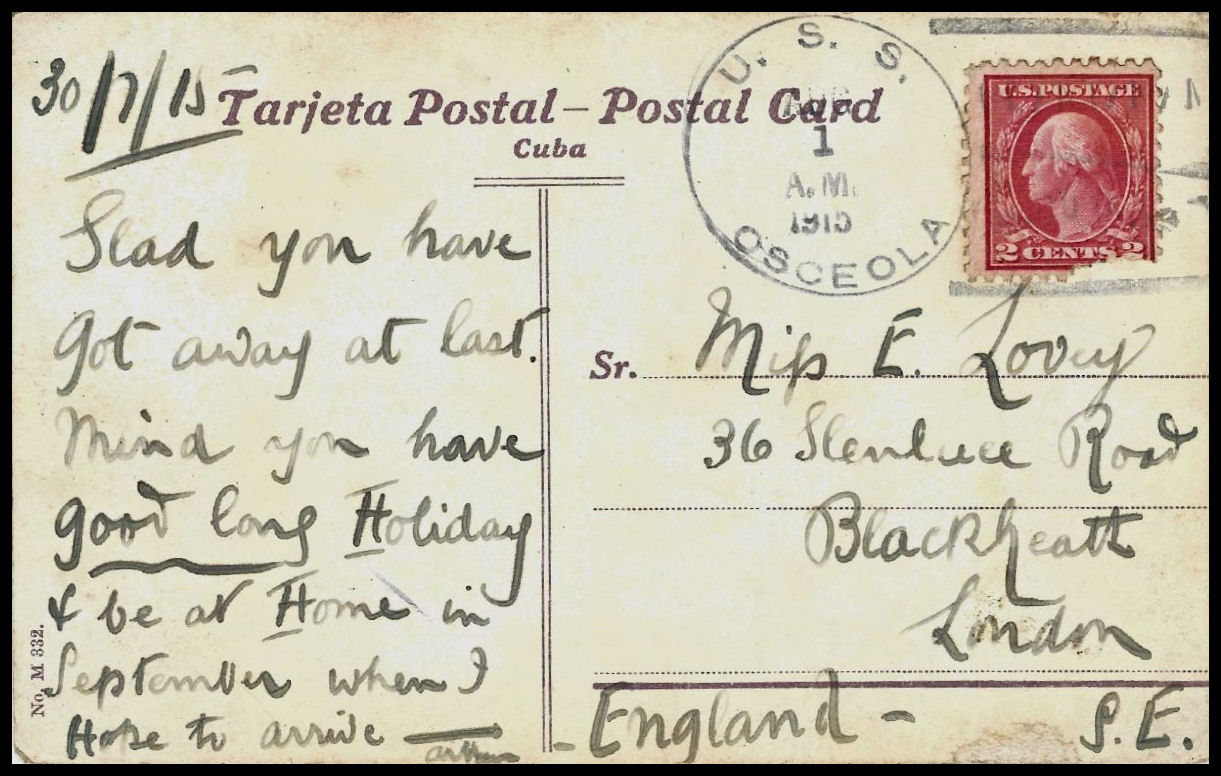 30/7/15
Tarjeta Postal – Postal Card
Cuba
U. S. S.
AUG
1
A.M.
1915
OSCEOLA
U.S. POSTAGE
2 CENTS 2
Glad you have
Got away at last.
Mind you have
good long Holiday
& be at Home in
September when I
Hope to arrive
Sr. Miss E. Lovey
36 Glenluce Road
Blackheath
London
England - S.E.
No. M 332.